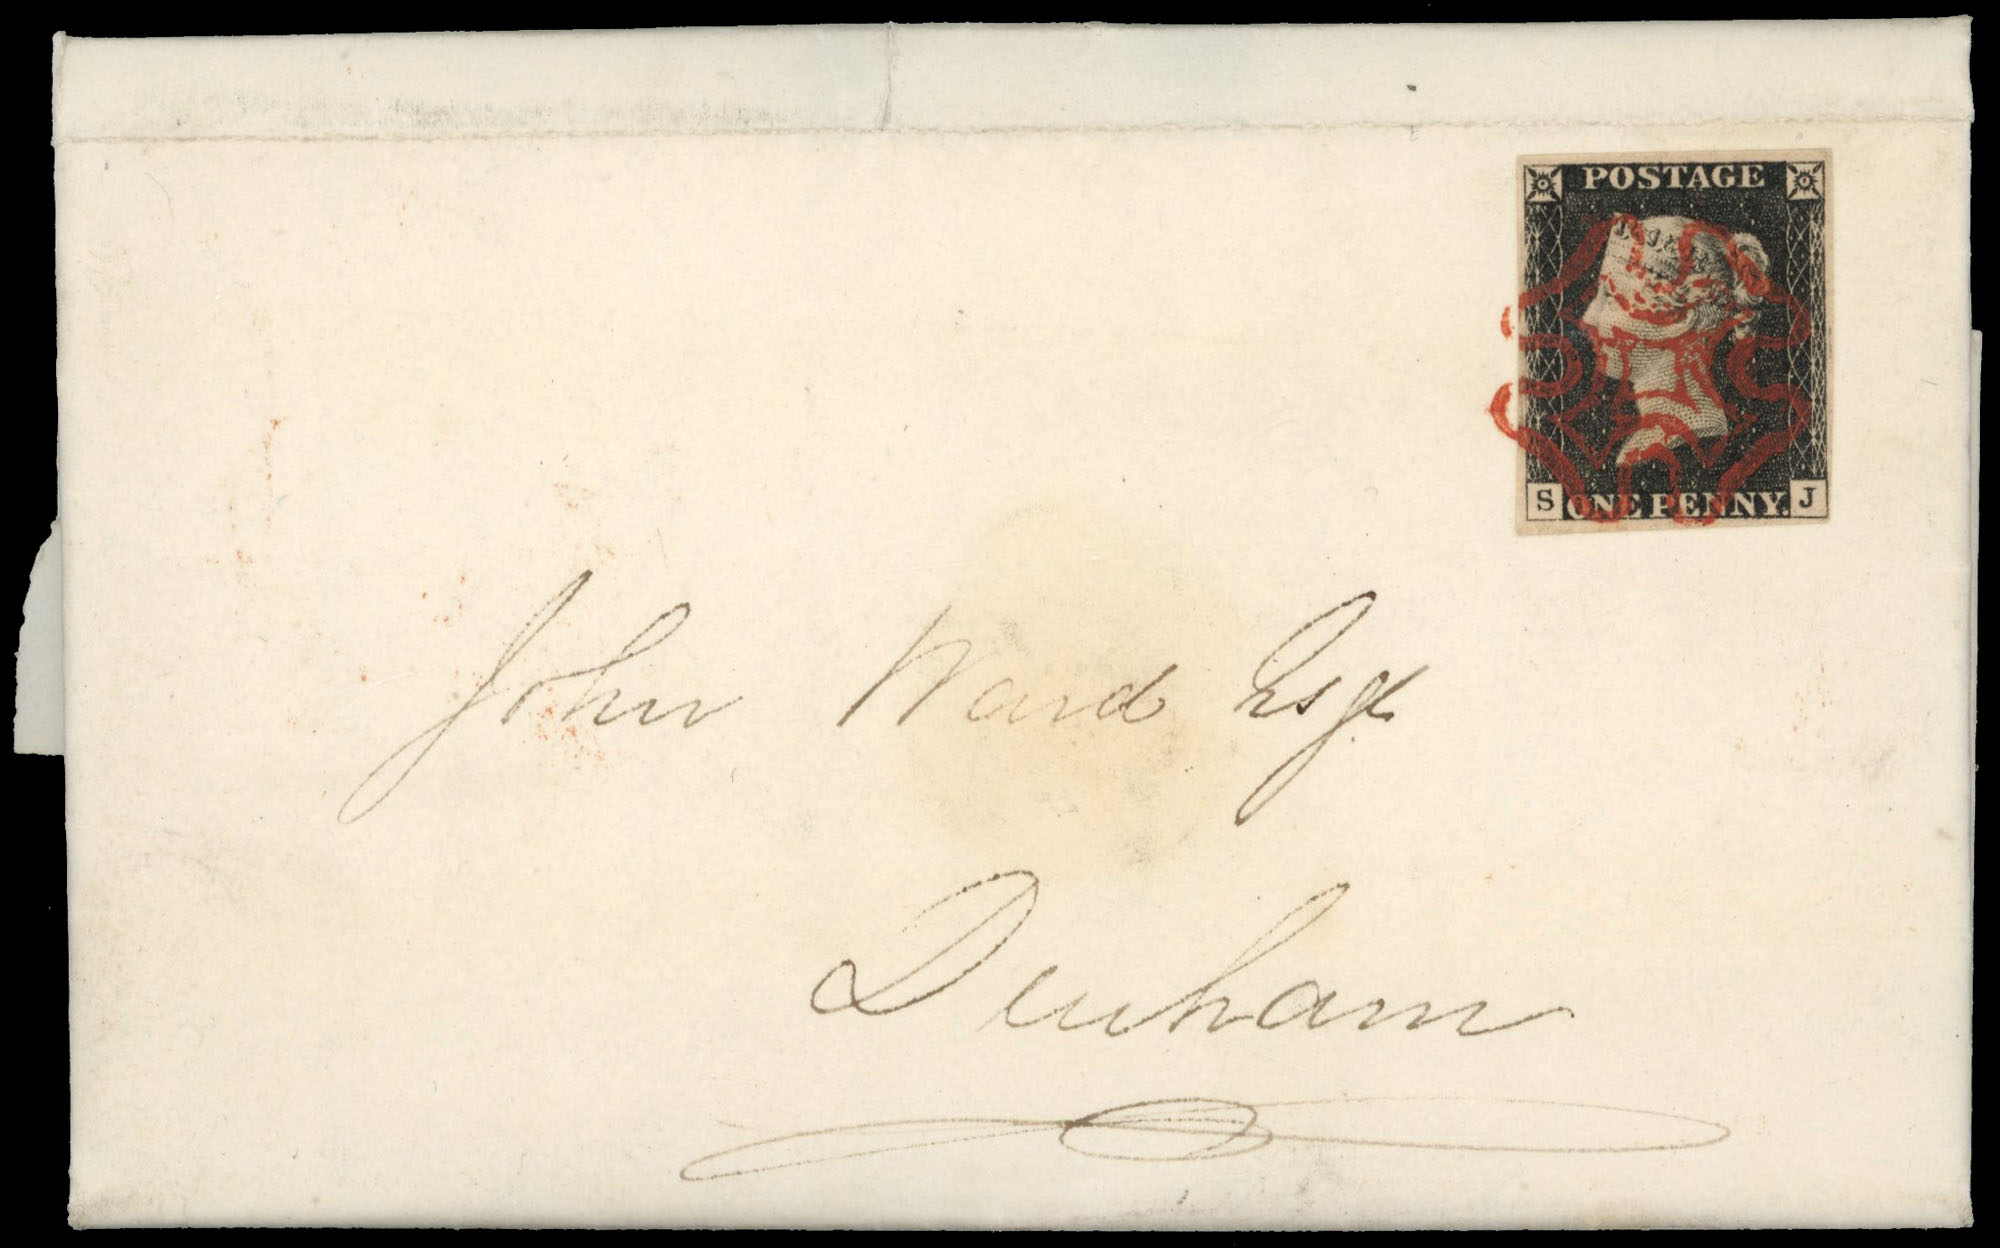 POSTAGE
S ONE PENNY. J
John Ward Esqr
Durham